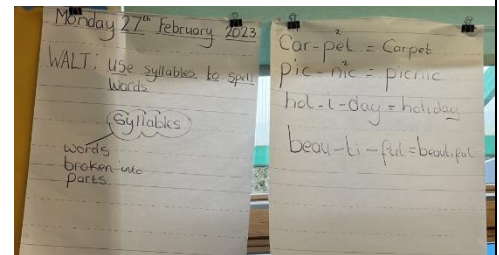 Monday 27th February 2023
WALT: Use syllables to spell
words
Syllables
words
broken into
parts.
Car-pet = Carpet
2
pic-nic = picnic
2
hol-i-day = holiday
beau-ti-ful = beautiful